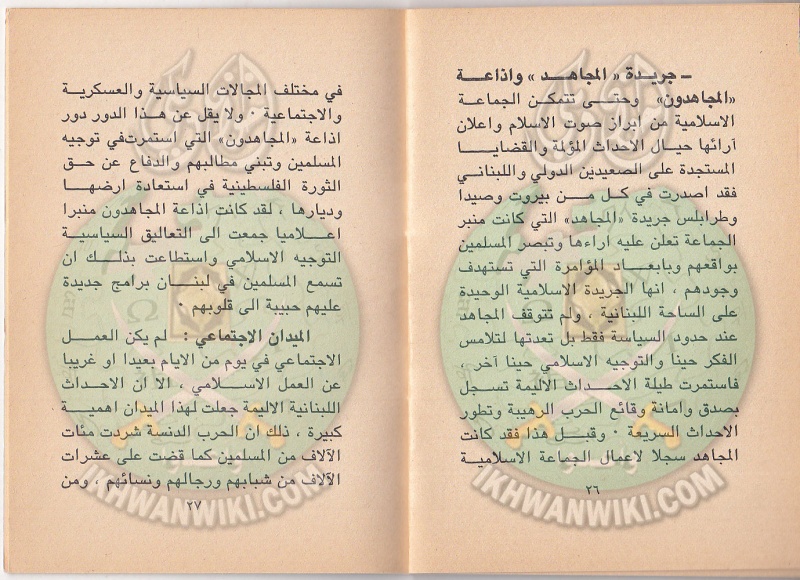 ـ جريدة «المجاهد» واذاعة
«المجاهدون» وحتى تتمكن الجماعة
الاسلامية من ابراز صوت الاسلام واعلان
آرائها حيال الاحداث المؤلمة والقضايا
المستجدة على الصعيدين الدولي واللبناني
فقد اصدرت في كل من بيروت وصيدا
وطرابلس جريدة «المجاهد» التي كانت منبر
الجماعة تعلن عليه اراءها وتبصر المسلمين
بواقعهم وبابعاد المؤامرة التي تستهدف
وجودهم ، انها الجريدة الاسلامية الوحيدة
على الساحة اللبنانية ، ولم تتوقف المجاهد
عند حدود السياسة فقط بل تعدتها لتلامس
الفكر حينا والتوجيه الاسلامي حينا آخر ،
فاستمرت طيلة الاحداث الاليمة تسجل
بصدق وامانة وقائع الحرب الرهيبة وتطور
الاحداث السريعة · وقبل هذا فقد كانت
المجاهد سجلا لاعمال الجماعة الاسلامية
٢٦
في مختلف المجالات السياسية والعسكرية
والاجتماعية · ولا يقل عن هذا الدور دور
اذاعة «المجاهدون» التي استمرت في توجيه
المسلمين وتبني مطالبهم والدفاع عن حق
الثورة الفلسطينية في استعادة ارضها
وديارها ، لقد كانت اذاعة المجاهدون منبرا
اعلاميا جمعت الى التعاليق السياسية
التوجيه الاسلامي واستطاعت بذلك ان
تسمع المسلمين في لبنان برامج جديدة
عليهم حبيبة الى قلوبهم ·
الميدان الاجتماعي : لم يكن العمل
الاجتماعي في يوم من الايام بعيدا او غريبا
عن العمل الاسلامي ، الا ان الاحداث
اللبنانية الاليمة جعلت لهذا الميدان اهمية
كبيرة ، ذلك ان الحرب الدنسة شردت مئات
الآلاف من المسلمين كما قضت على عشرات
الآلاف من شبابهم ورجالهم ونسائهم ، ومن
٢٧
IKHWANWIKI.COM
IKHWANWIKI.COM